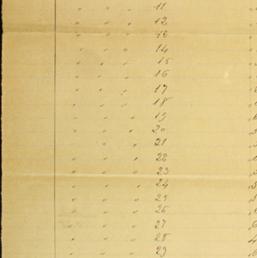 " " " 11
" " " 12
" " " 13
" " " 14
" " " 15
" " " 16
" " " 17
" " " 18
" " " 19
" " " 20
" " " 21
" " " 22
" " " 23
" " " 24
" " " 25
" " " 26
" " " 27
" " " 28
" " " 29